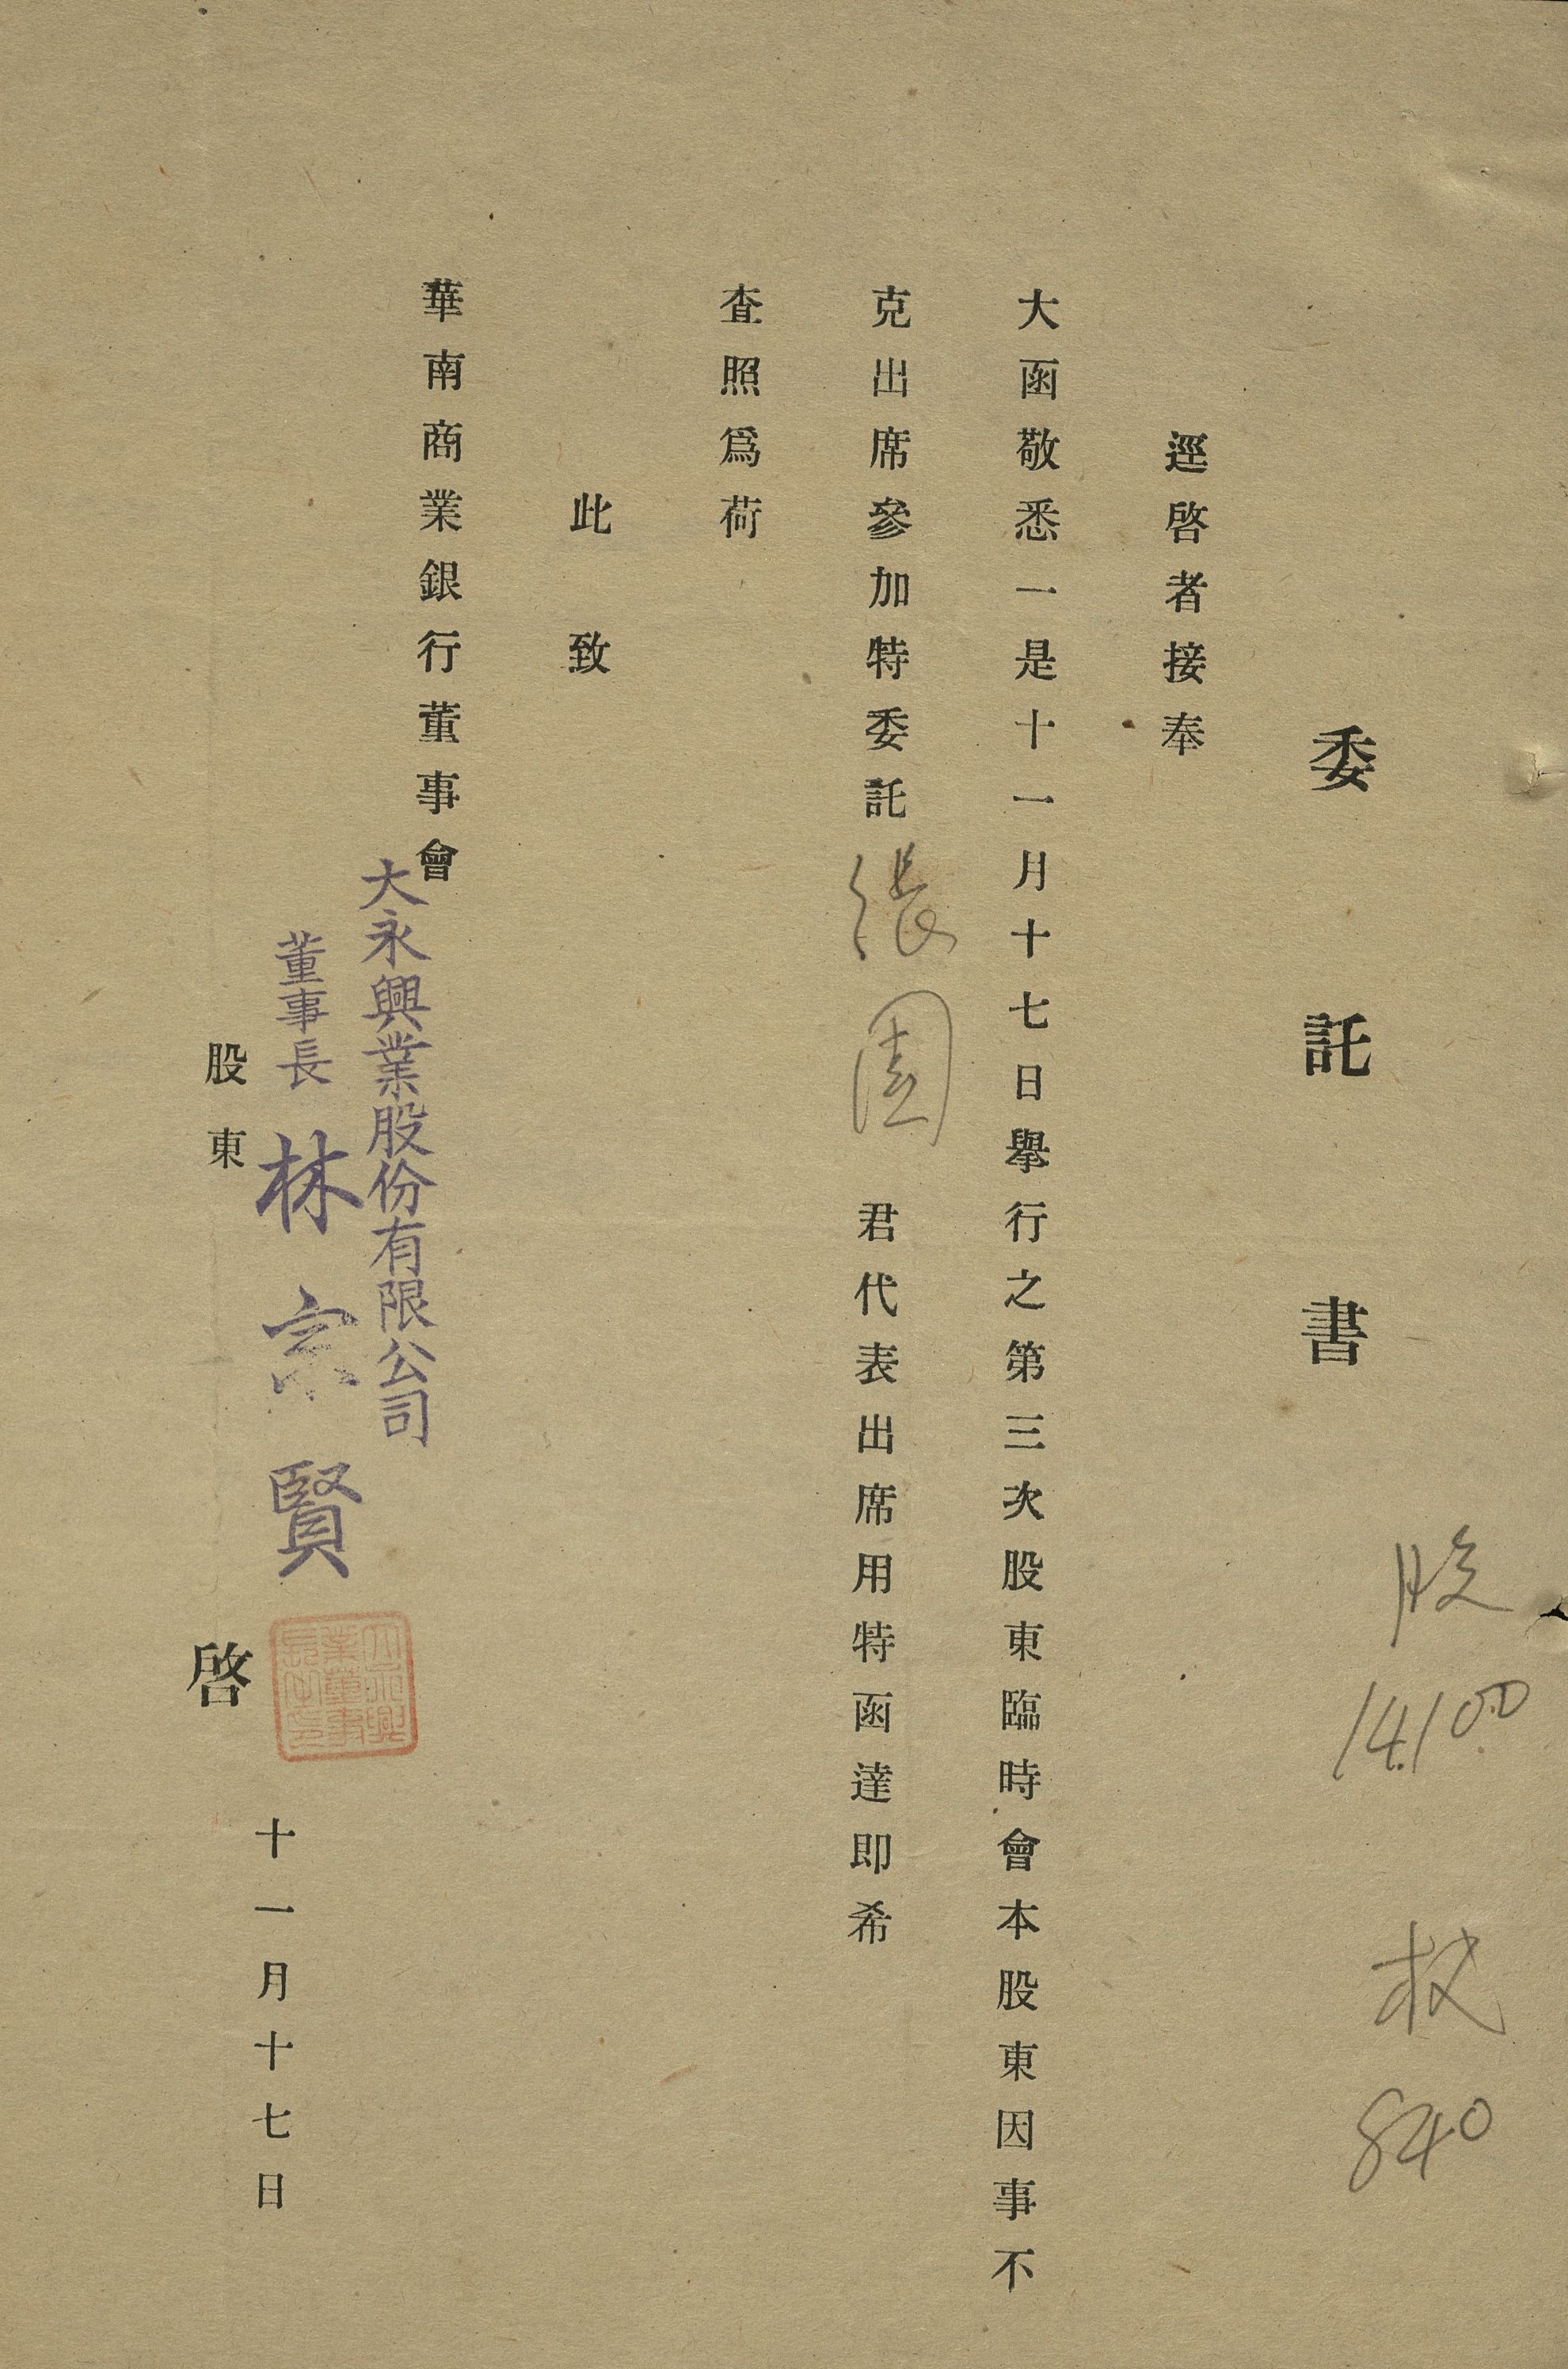 委託書
股 14,100 权 840
逕啓者接奉
大函敬悉一是十一月十七日舉行之第三次股東臨時會本股東因事不
克出席參加特委託張園君代表出席用特函達即希
查照爲荷
此致
華南商業銀行董事會
大永興業股份有限公司
董事長 林宗賢
股東 啓
十一月十七日